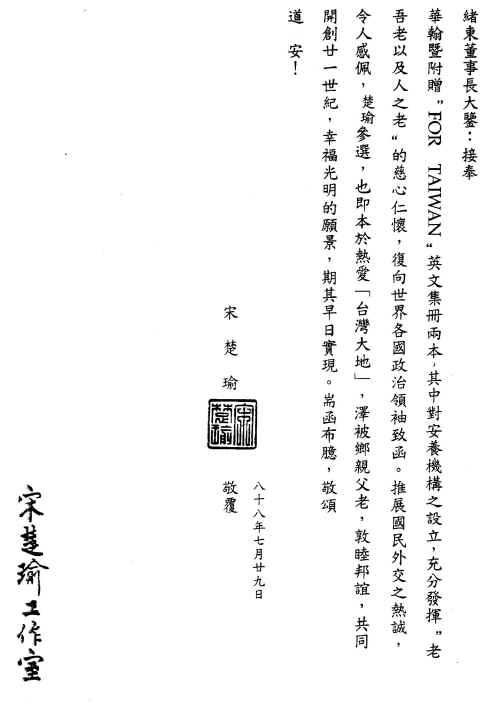 緒東董事長大鑒：接奉
華翰暨附贈〞FOR TAIWAN〝英文集冊兩本，其中對安養機構之設立，充分發揮〞老
吾老以及人之老〝的慈心仁懷，復向世界各國政治領袖致函。推展國民外交之熱誠，
令人感佩，楚瑜參選，也即本於熱愛「台灣大地」，澤被鄉親父老，敦睦邦誼，共同
開創廿一世紀，幸福光明的願景，期其早日實現。耑函布臆，敬頌
道 安！
宋楚瑜
宋楚瑜
敬覆
八十八年七月廿九日
宋楚瑜工作室